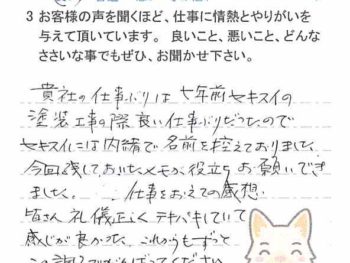 3 お客様の声を聞くほど、仕事に情熱とやりがいを
与えて頂いています。良いこと、悪いこと、どんな
ささいな事でもぜひ、お聞かせ下さい。
貴社の仕事ぶりは七年前セキスイの
塗装工事の際良い仕事ぶりだったので
セキスイには内緒で名前を控えておりました
今回残しておいたメモが役立ちお願いでき
ました。 仕事をおえての感想
皆さん礼儀正しくテキパキしていて
感じが良かった、これからもずっと
この調子でがんばってください